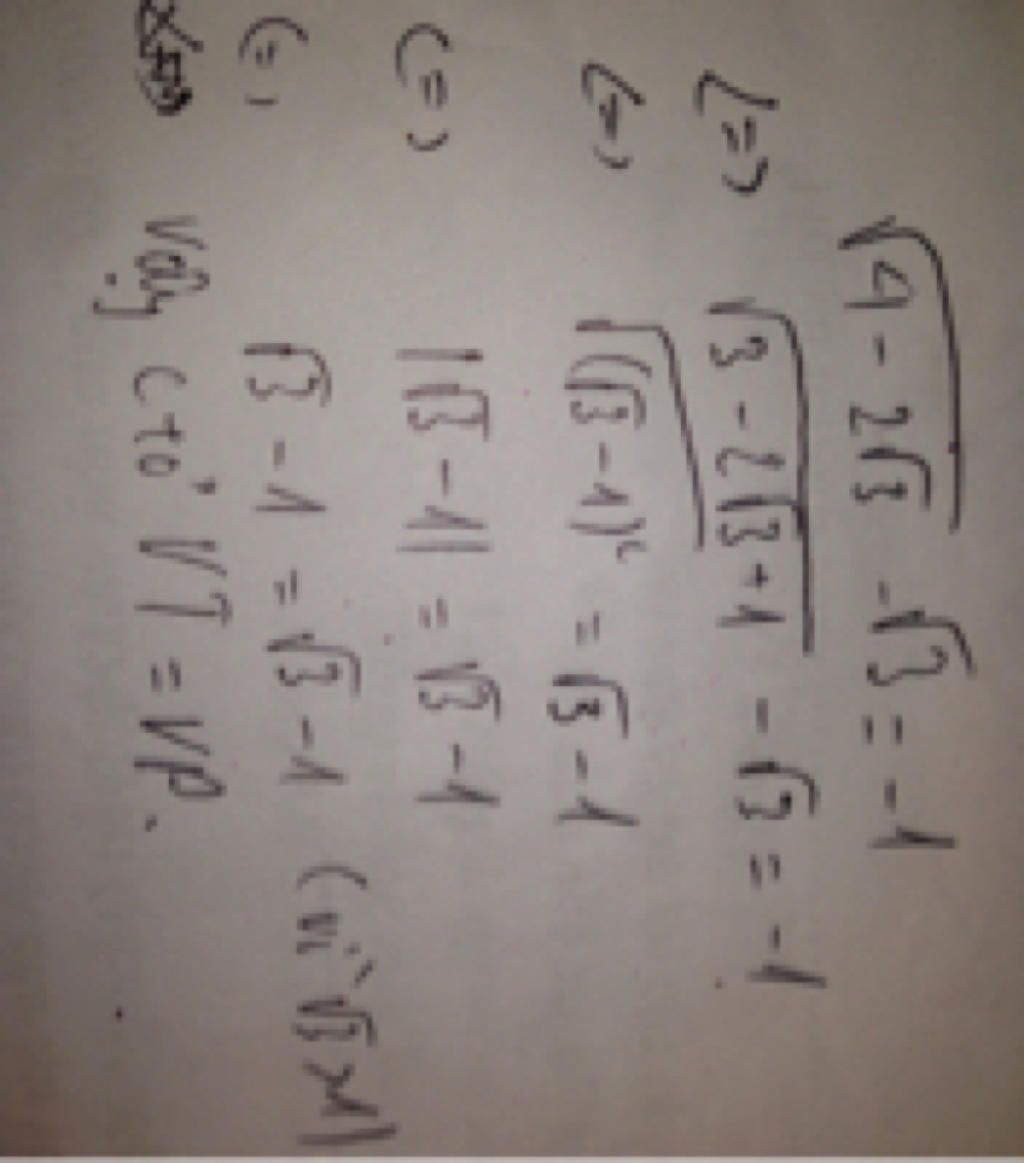 √(4 - 2√3) - √3 = -1
<=> √(3 - 2√3 + 1) - √3 = -1
<=> √((√3 - 1)²) = √3 - 1
<=> |√3 - 1| = √3 - 1
<=> √3 - 1 = √3 - 1 (vì √3 > 1)
Vậy c tỏ VT = VP.